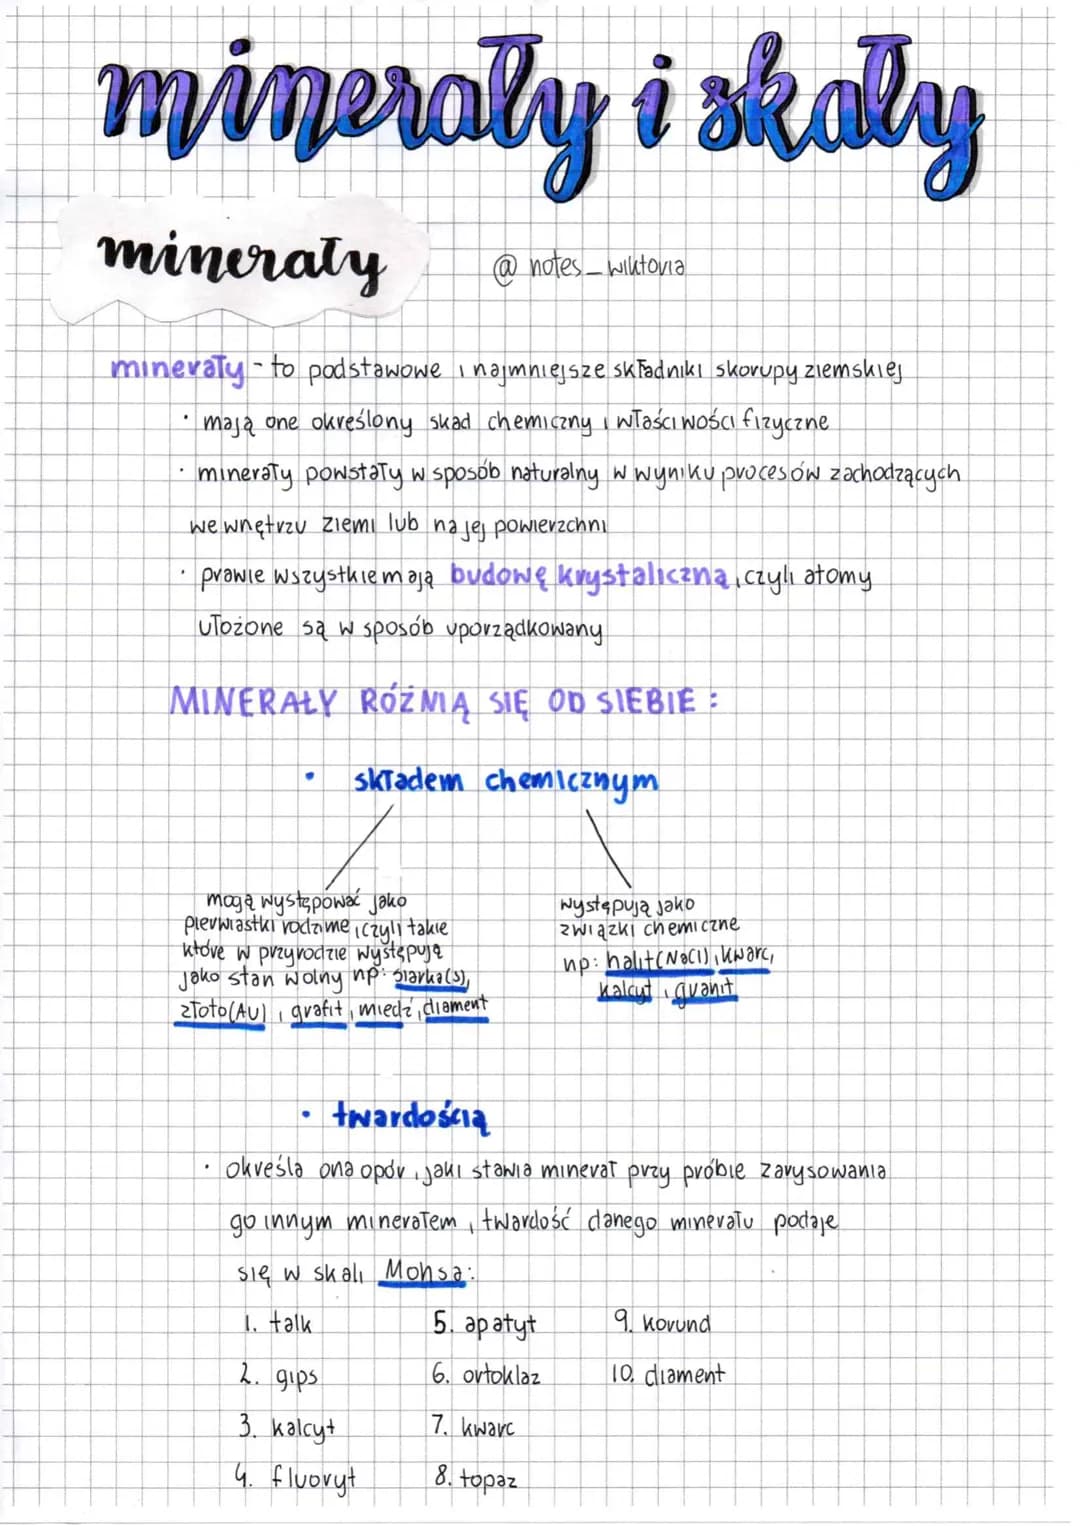 minerały i skały
minerały
@notes_wiktoria
minerały - to podstawowe i najmniejsze składniki skorupy ziemskiej
• mają one określony skad chemiczny i właściwości fizyczne
• minerały powstały w sposób naturalny w wyniku procesów zachodzących
we wnętrzu Ziemi lub na jej powierzchni
• prawie wszystkie mają budowę krystaliczną, czyli atomy
ułożone są w sposób uporządkowany
MINERAŁY RÓŻNIĄ SIĘ OD SIEBIE:
• składem chemicznym
mogą występować jako
pierwiastki rodzime, czyli takie
które w przyrodzie występują
jako stan wolny np: siarka(s),
złoto(Au), grafit, miedź, diament
występują jako
związki chemiczne
np: halit(NaCl), kwarc,
kalcyt, granit
• twardością
• określa ona opór, jaki stawia minerał przy próbie zarysowania
go innym minerałem, twardość danego minerału podaje
się w skali Mohsa:
1. talk
2. gips
3. kalcyt
4. fluoryt
5. apatyt
6. ortoklaz
7. kwarc
8. topaz
9. korund
10. diament